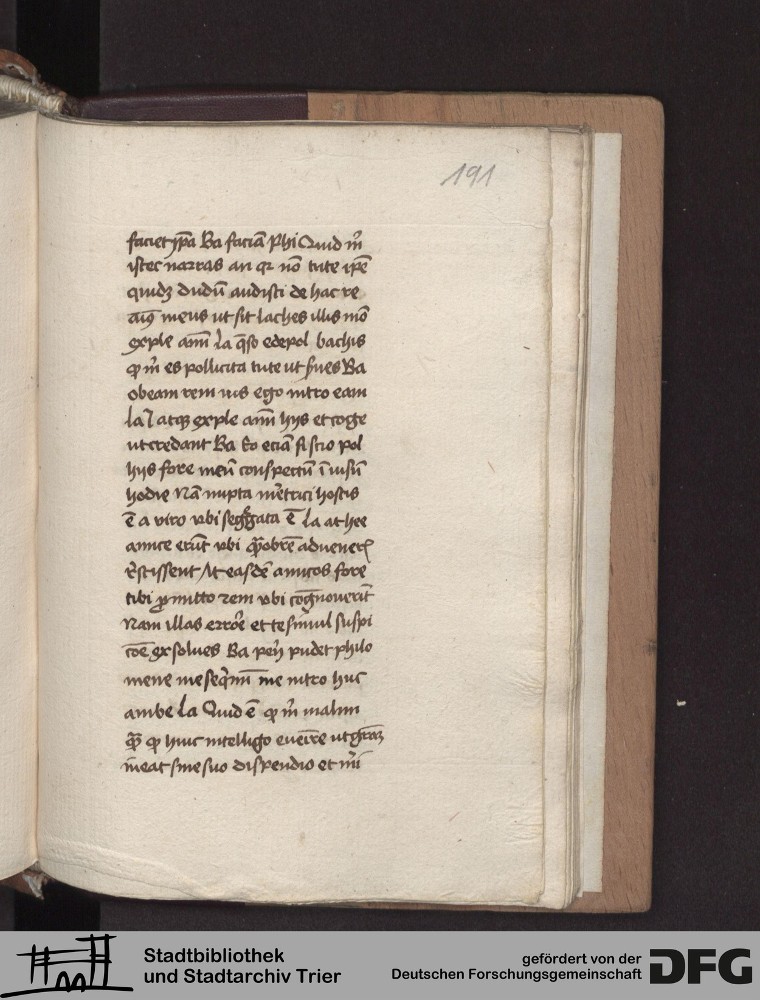 191
faciet ip̄a Ba faciā Phi Quid m̄
istec narras an qr nō tute ip̄e
quidȝ dudū audisti de hac re
meus ut sit laches illis mō
exple aīm La q̄so edepol bachis
ꝙ m̄ es pollicita tute ut s̄ues Ba
obeam rem uis ego intro eam
La atqȝ exple aīm hijs et coge
ut credant Ba Eo eciā si scio pol
hijs fore meū conspectū ī uisū
hodie Nā nupta m̄etrici hostis
ē a viro vbi seḡgata ē La at hee
amice erūt vbi q̄obrē adueneris
r̄scissent At easdē amicos fore
tibi ꝓmitto rem vbi coḡnouerīt
Nam illas errōe et te simul suspi
cōe exsolues Ba perij pudet philo
mene me seq̄mī me intro huc
ambe La Quid ē ꝙ m̄ malim
q̄ ꝙ huic intelligo eueīre ut
ineat sine suo dispendio et m̄i
Stadtbibliothek
und Stadtarchiv Trier
gefördert von der
Deutschen Forschungsgemeinschaft
DFG